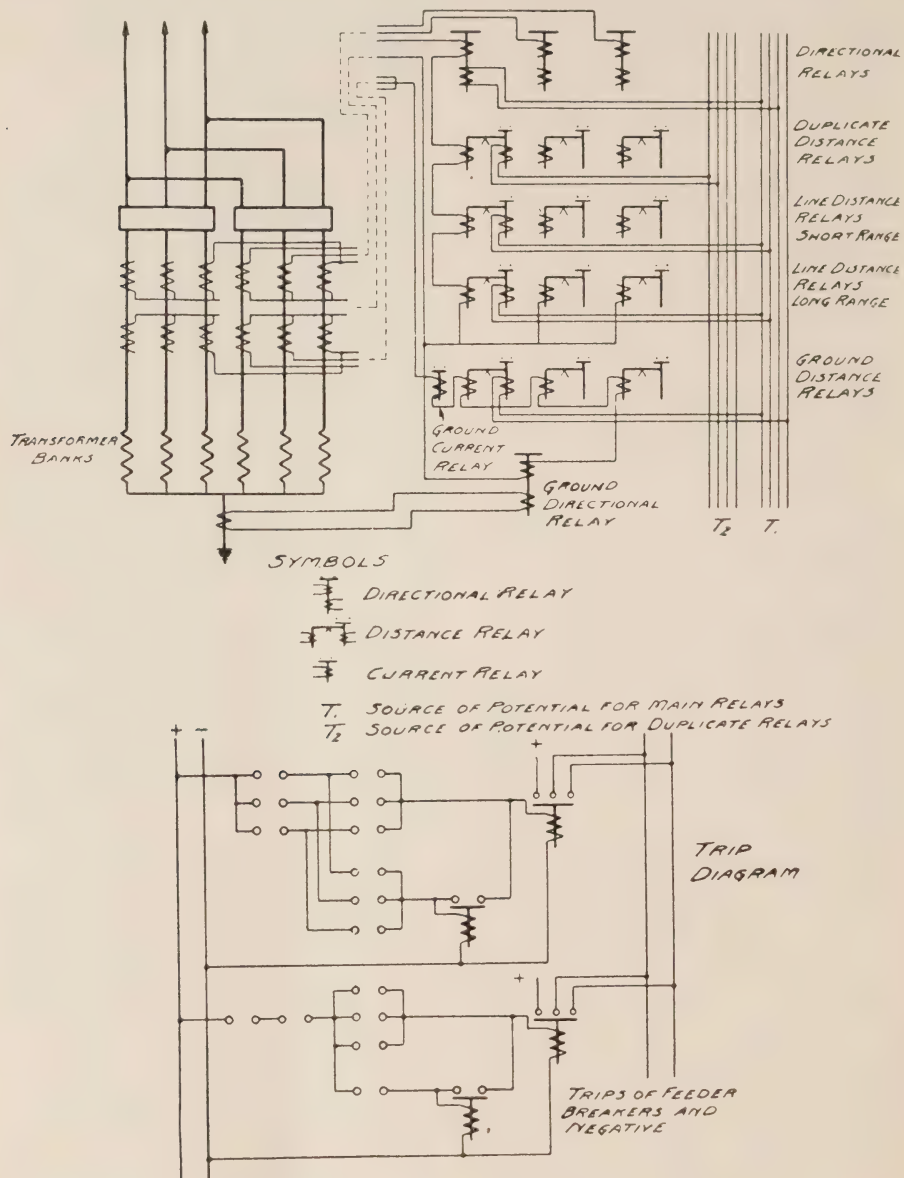 DIRECTIONAL
RELAYS
DUPLICATE
DISTANCE
RELAYS
LINE DISTANCE
RELAYS
SHORT RANGE
LINE DISTANCE
RELAYS
LONG RANGE
GROUND
DISTANCE
RELAYS
TRANSFORMER
BANKS
GROUND
CURRENT
RELAY
GROUND
DIRECTIONAL
RELAY
T2 T1
SYMBOLS
DIRECTIONAL RELAY
DISTANCE RELAY
CURRENT RELAY
T1 SOURCE OF POTENTIAL FOR MAIN RELAYS
T2 SOURCE OF POTENTIAL FOR DUPLICATE RELAYS
+ −
+
TRIP
DIAGRAM
+
TRIPS OF FEEDER
BREAKERS AND
NEGATIVE